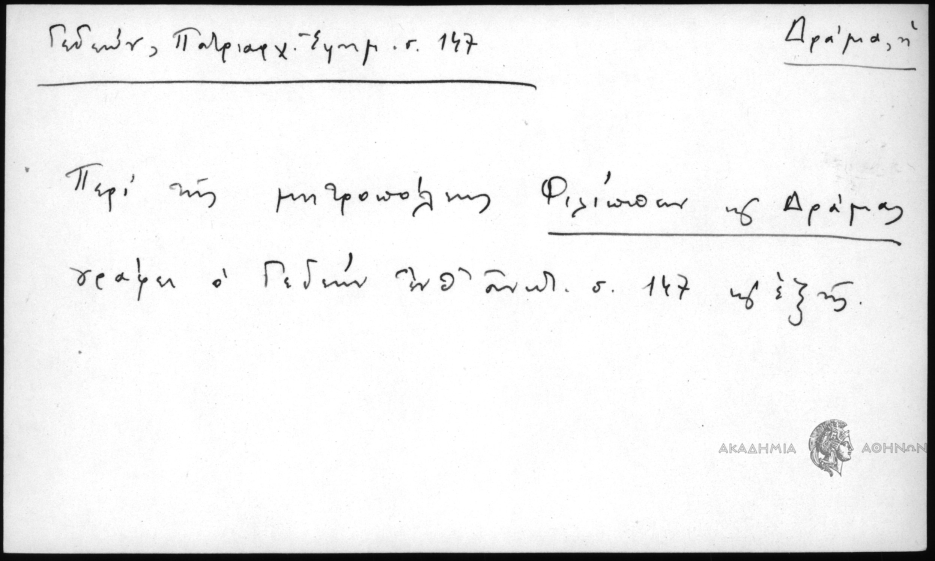 Γεδεών, Πατριαρχ. Ἐφημ. σ. 147
Δράμα, ἡ
Περὶ τῆς μητροπόλεως Φιλίππων κ Δράμας
γράφει ὁ Γεδεών ἔνθ' ἀνωτ. σ. 147 κ ἑξῆς.
ΑΚΑΔΗΜΙΑ ΑΘΗΝΩΝ